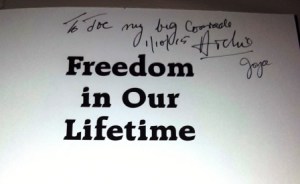 To Joe my big Comrade
1/10/15 Archie
Freedom
in Our
Lifetime